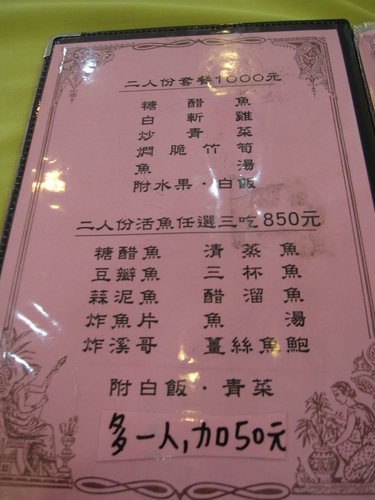 二人份套餐1000元
糖醋魚
白斬雞
炒青菜
燜脆竹筍
魚湯
附水果·白飯
二人份活魚任選三吃850元
糖醋魚 清蒸魚
豆瓣魚 三杯魚
蒜泥魚 醋溜魚
炸魚片 魚湯
炸溪哥 薑絲魚鮑
附白飯·青菜
多一人,加50元